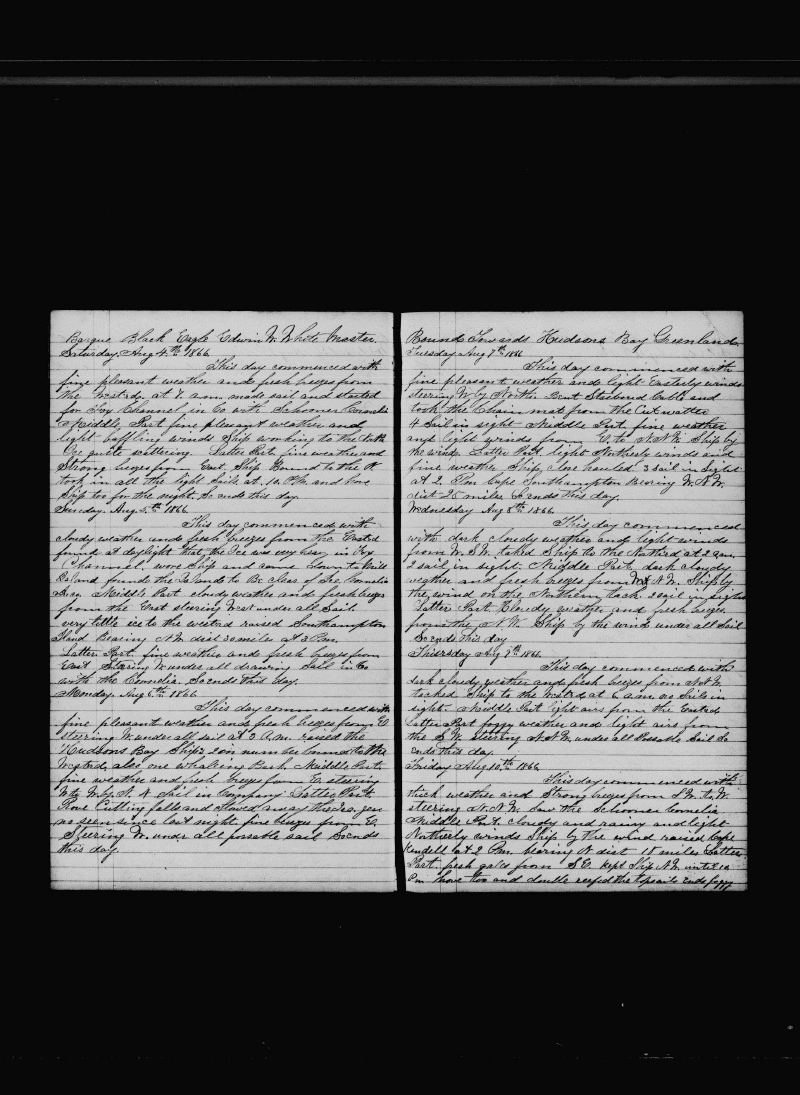 Barque Black Eagle Edwin W. White Master
Saturday, Aug 4th 1866
This day commenced with
fine pleasant weather and fresh breezes from
the Westrd, at 7 a.m. made sail and started
for Fox Channel in Co with Schooner Cornelia
Middle, Part fine pleasant weather and
light baffling winds Ship working to the
Ice quite scattering. Latter Part fine weather and
Strong breezes from East. Ship Bound to the N
took in all the light Sails at 10 P.M. and hove
Ship too for the night. So ends this day.
Sunday. Aug. 5th 1866
This day commenced with
cloudy weather and fresh breezes from the Eastrd
found at daylight that the Ice was very heavy in Fox
Channel, wore Ship and came down to Mill
Island found the Islands to Be Clear of Ice Cornelia
Middle Part cloudy weather and fresh breezes
from the East steering West under all Sail.
very little ice to the westrd raised Southampton
Island Bearing N.W. dist 30 miles at 3 P.m.
Latter Part. fine weather and fresh breezes from
East Steering W under all drawing Sail in Co
with the Cornelia. So ends this day.
Monday. Aug 6th 1866
This day commenced with
fine pleasant weather and fresh breezes from E
steering W. under all sail at 2 A.m. raised the
Hudsons Bay Ships 2 in number bound to the
Westrd, also one whaling Bark. Middle Part.
fine weather and fresh breezes from E. steering
W to W by N. 4 Sail in Company Latter Part.
Rove Cutting falls and stowed away the
no seen since last night fine breezes from E.
Steering W. under all possable sail So ends
this day.
Bound Towards Hudsons Bay Greenland
Tuesday Aug 7th 1866
This day commenced with
fine pleasant weather and light Easterly winds
steering W. by North. Bent Starboard Cable and
took the Chain mat from the Cutwatter
4 Sail in sight. Middle Part. fine weather
and light winds from E. to N.N.W. Ship by
the wind. Latter Part light Northerly winds and
fine weather. Ship, close hauled. 3 sail in sight
at 2. P.m Cape Southampton Bearing W.N.W.
dist 25 miles So ends this day.
Wednesday Aug 8th 1866
This day commenced
with dark cloudy weather and light winds
from W.S.W. tacked Ship to the Northrd at 2 a.m.
2 sail in sight. Middle Part dark cloudy
weather and fresh breezes from N.W. Ship by
the, wind on the Northern tack. 2 sail in sight
Latter Part Cloudy weather and fresh breezes
from the N.W. Ship by the wind under all Sail
So ends this day
Thursday Aug 9th 1866
This day commenced with
dark cloudy weather and fresh breezes from N.N.W.
tacked Ship to the Westrd at 6 a.m. no Sails in
sight. Middle Part light airs from the Eastrd
Latter Part foggy weather and light airs from
the S.W. steering N.N.W. under all Possable Sail So
ends this day.
Friday Aug 10th 1866
This day commenced with
thick weather and Strong breezes from S.W. to W.
steering N.N.W. Saw the Schooner Cornelia
Middle Part. cloudy and rainy and light
Northerly winds Ship by the wind raised Cape
Kendell at 2 P.m bearing N dist 18 miles Latter
Part. fresh gales from S.E. kept Ship N.W. until 10
P.m hove too and double reefed the topsails ends foggy